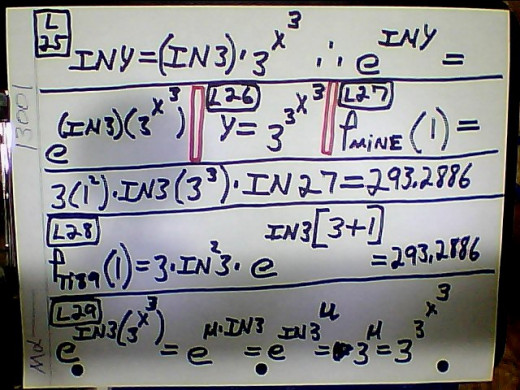 L25 INY=(IN3)·3^x^3 ∴ e^INY =
e^(IN3)(3^x^3) L26 y=3^3^x^3 L27 f MINE (1)=
3(1²)·IN3(3³)·IN27=293.2886
L28 f TI89 (1)=3·IN²3·e^IN3[3+1] =293.2886
L29 e^IN3(3^x^3) = e^μ·IN3 = e^IN3^μ = 3^μ = 3^3^x^3
1300